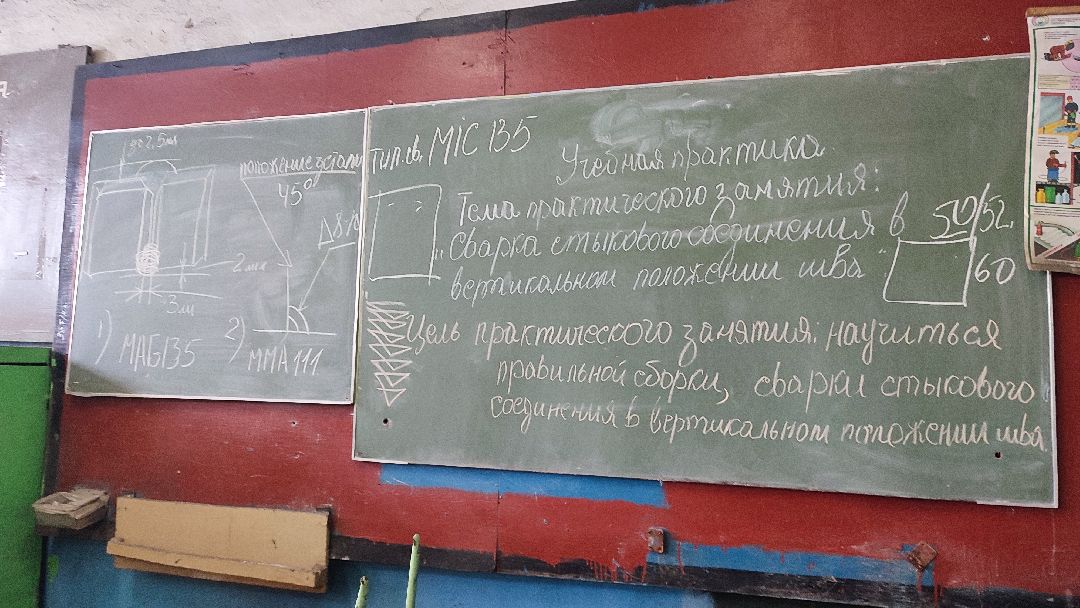 2,5мм
положение
45°
Δ8
2 мм
3м
1) МАБ135
2) ММА 111
тип.св. MIC 135
Учебная практика.
Тема практического занятия:
сварка стыкового соединения в
"вертикальном положении шва"
50/52
60
Цель практического занятия: научиться
правильной сборки, сварки стыкового
соединения в вертикальном положении шва